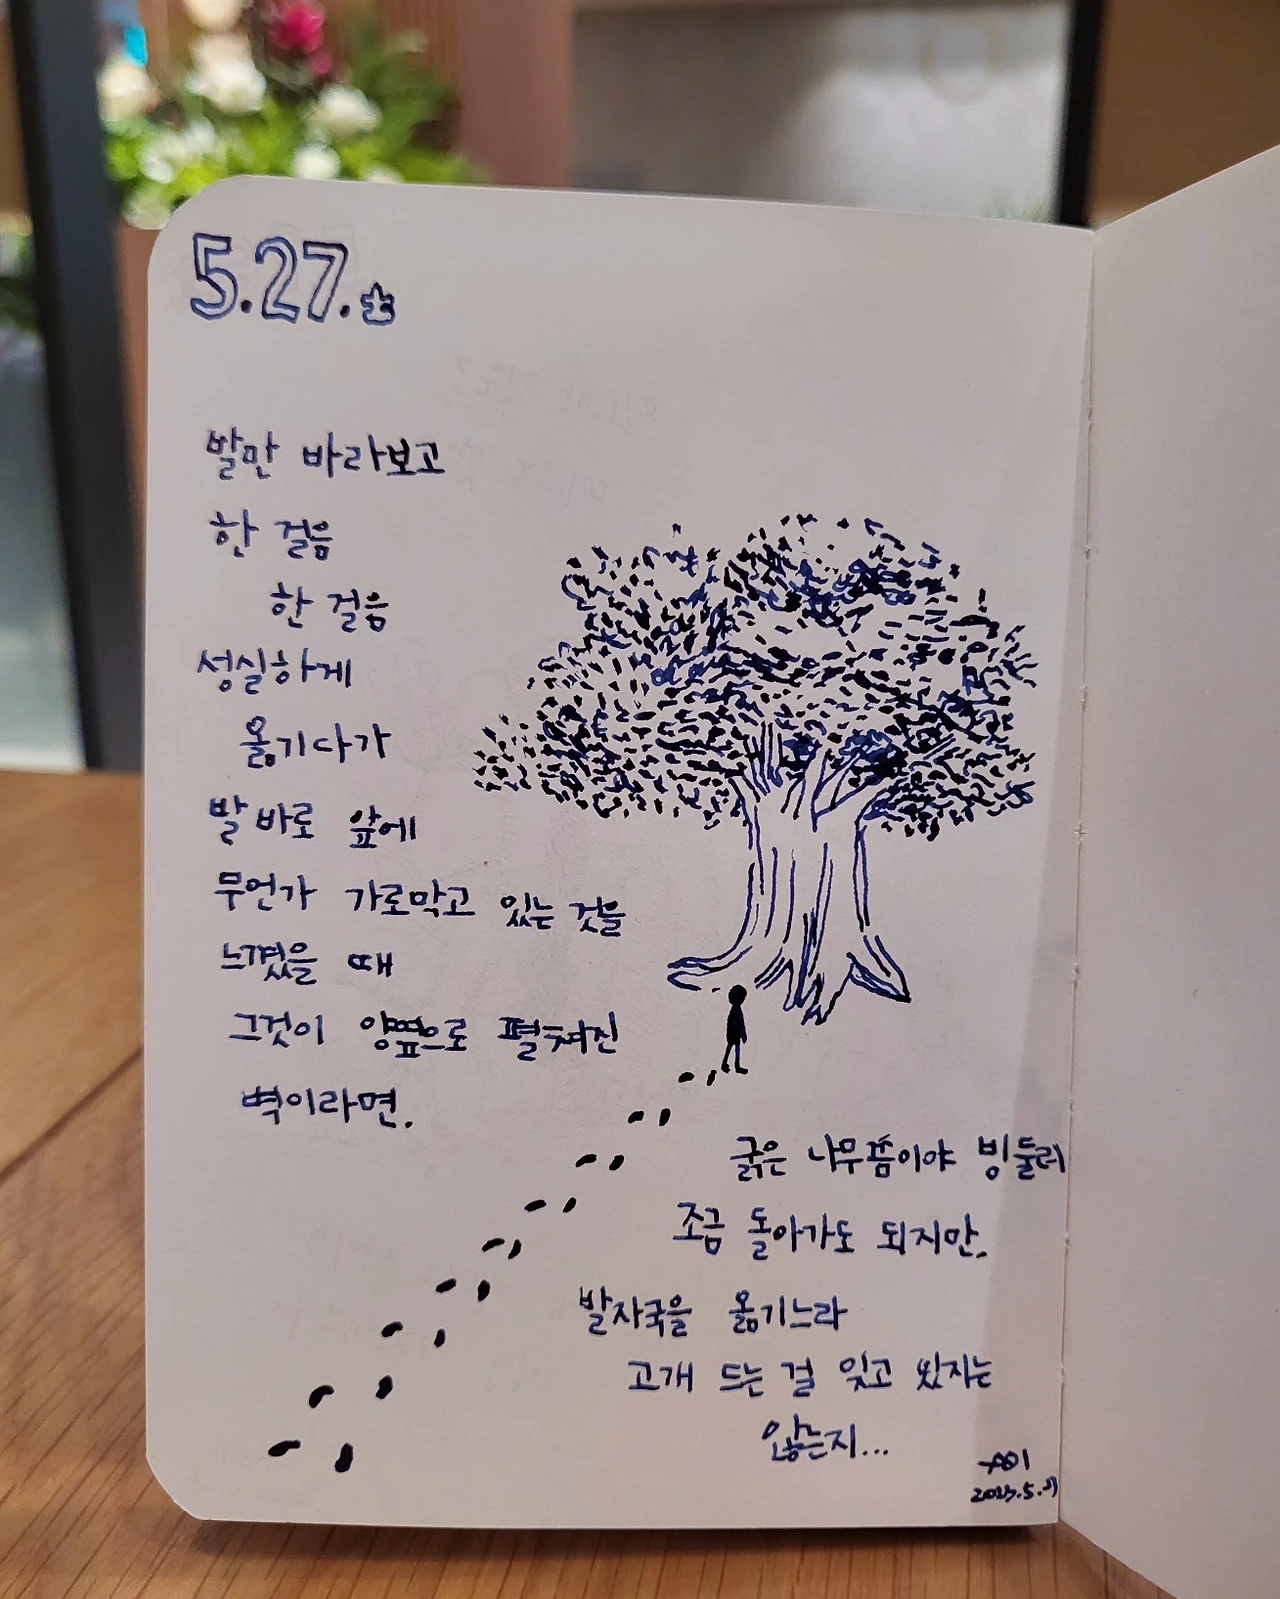 5.27.土
발만 바라보고
한 걸음
한 걸음
성실하게
옮기다가
발 바로 앞에
무언가 가로막고 있는 것을
느꼈을 때
그것이 양옆으로 펼쳐진
벽이라면.
굵은 나무쯤이야 빙 둘러
조금 돌아가도 되지만.
발자국을 옮기느라
고개 드는 걸 잊고 있지는
않는지...
2023.5.27